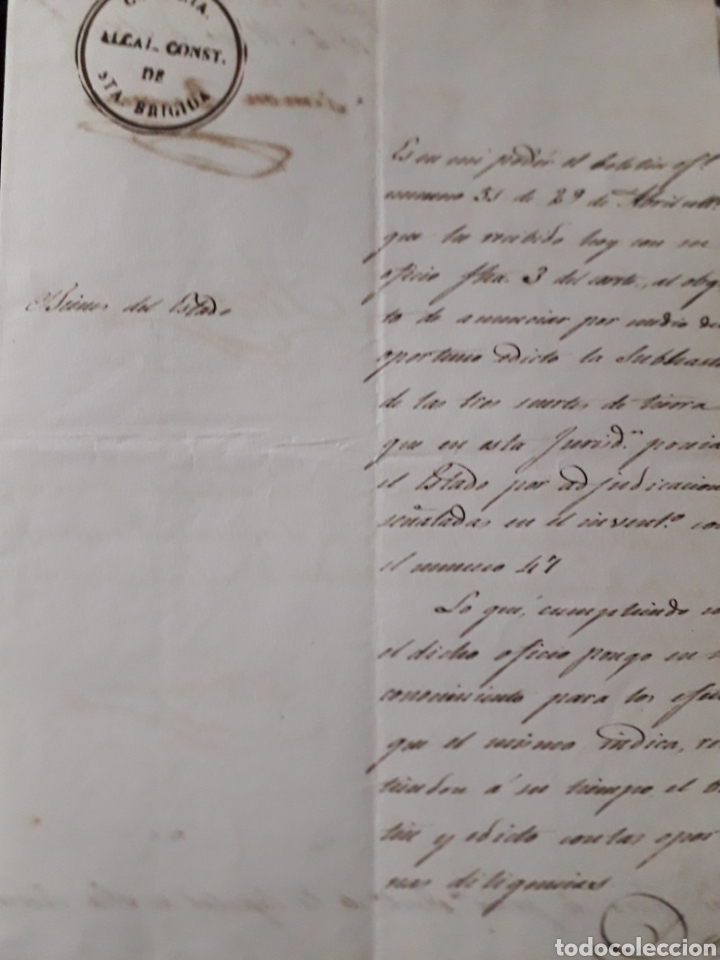 ALCAL. CONST.
DE
STA. BRIGIDA
Es en mi poder el boletin ofl.
numero 35 de 29 de Abril ultº.
que he recibido hoy con su
oficio fha. 3 del corte., al obge
to de anunciar por medio de
oportuno edicto la Subhasta
Bienes del Estado
de las tres suertes de tierra
que en esta Jurisdn. poseia
el Estado por adjudicacion
señaladas en el inventº. con
el numero 47
Lo que, cumpliendo
el dicho oficio pongo en
conocimiento para los efec
que el mismo indica, re
tiendole á su tiempo el Bo
tin y edicto con las opor
nas diligencias
todocoleccion.net